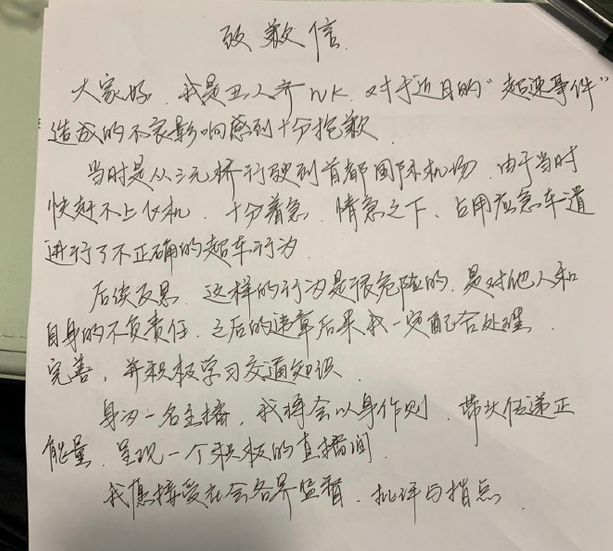 致歉信.
大家好. 我是丑人齐nk. 对于近日的“超速事件”
造成的不良影响感到十分抱歉.
当时是从三元桥行驶到首都国际机场. 由于当时
快赶不上飞机. 十分着急. 情急之下、占用应急车道
进行了不正确的超车行为.
后续反思. 这样的行为是很危险的. 是对他人和
自身的不负责任. 之后的违章后果我一定配合处理.
完善, 并积极学习交通知识.
身为一名主播, 我将会以身作则. 带头传递正
能量. 呈现一个积极的直播间.
我愿接受社会各界监督. 批评与指点.